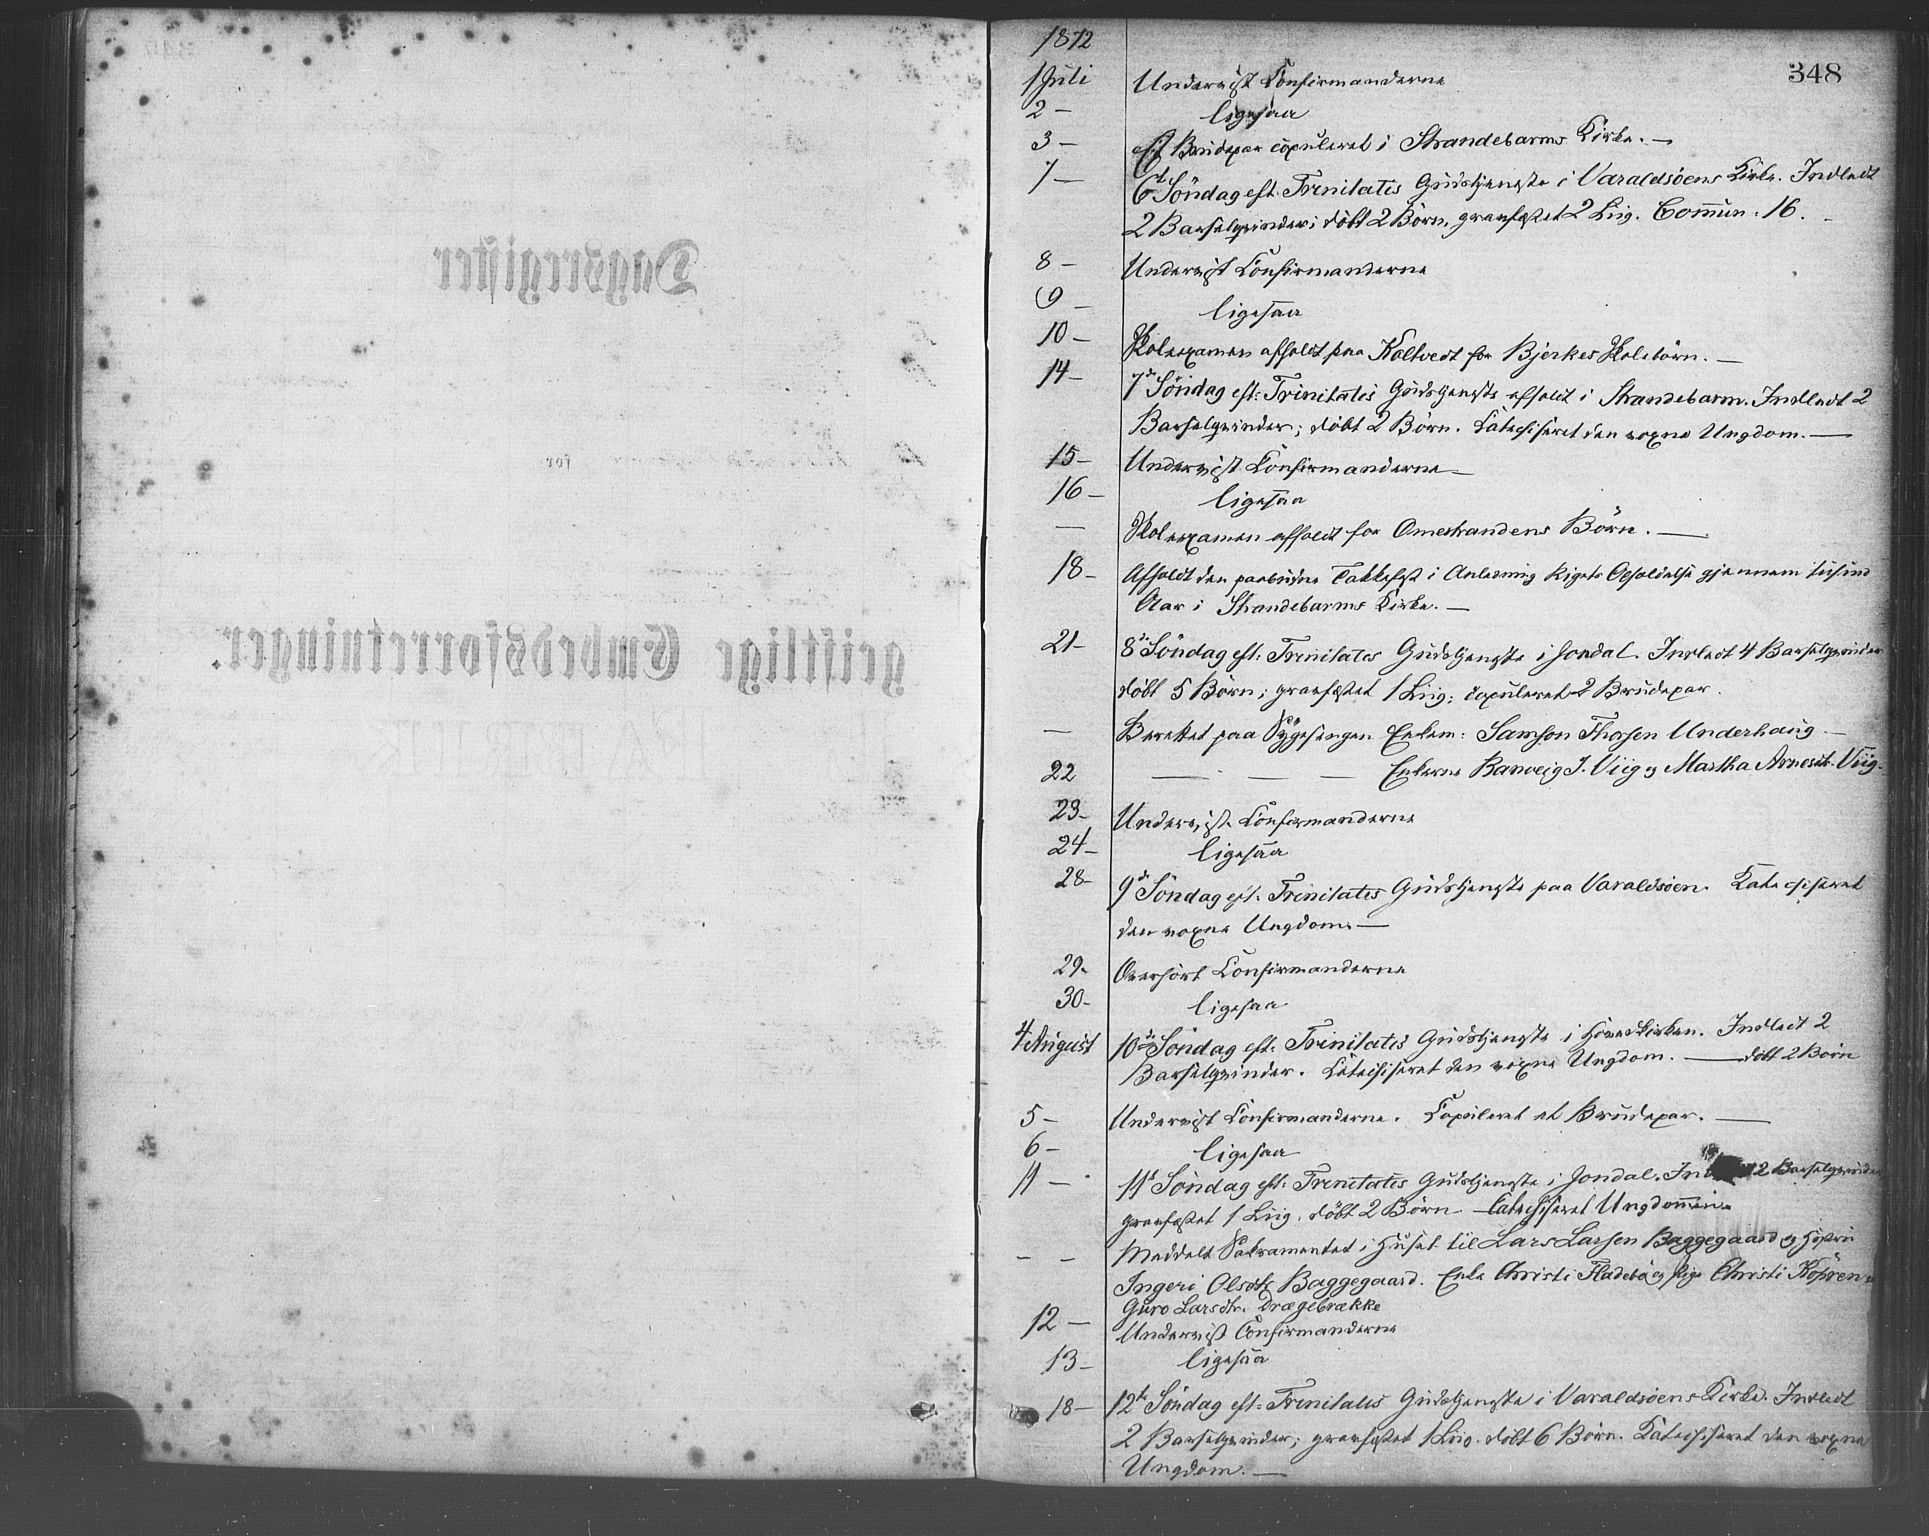 1872
348
1 Juli Underviist Confirmanderne
2 — ligesaa
3 — Et Brudepar copuleret i Strandebarms Kirke. —
7 — 6te Söndag eft. Trinitatis Gudstjeneste i Varaldsöens Kirke. Indledt
2 Barselqvinder; döbt 2 Börn, graefæstet 2 Liig. Commun. 16.
8 — Underviist Confirmanderne
9 — ligesaa
10 — Skoleexamen afholdt paa Koltvedt for Bjerkes Skolebörn. —
14 — 7de Söndag eft: Trinitatis Gudstjeneste afholdt i Strandebarm. Indledt 2
Barselqvinder; döbt 2 Börn. Catechiseret den voxne Ungdom. —
15 — Underviist Confirmanderne —
16 — ligesaa
— Skoleexamen afholdt for Omestrandens Börn. —
18 — Afholdt den paabudne Takkefest i Anledning Rigets Opholdelse gjennem tusind
Aar i Strandebarms Kirke. —
21 — 8de Söndag eft: Trinitatis Gudstjeneste i Jondal. Indledt 4 Barselqvinder
döbt 5 Börn; graefæstet 1 Liig; copuleret 2 Brudepar.
— Berettet paa Sygesengen Enkem: Samson Thosen Underhaug —
22 — — — Enkerne Ranveig J. Viig og Martha Arnesdt. Viig.
23 — Underviist Confirmanderne
24 — ligesaa
28 — 9de Söndag eft. Trinitatis Gudstjeneste paa Varaldsöen. Catechiseret
den voxne Ungdom. —
29 — Overhört Confirmanderne
30 — ligesaa
4 August 10de Söndag eft: Trinitatis Gudstjeneste i Hovedkirken. Indledt 2
Barselqvinder. Catechiseret den voxne Ungdom. — döbt 2 Börn
5 — Underviist Confirmanderne. Copuleret et Brudepar. —
6 — ligesaa
11 — 11te Söndag eft: Trinitatis Gudstjeneste i Jondal. 2 Barselqvinder
graefæstet 1 Liig. döbt 2 Börn — Catechiseret Ungdommen
— — Meddelt Sakramentet i Huset til Lars Larsen Baggegaard og Hustru
Ingeri Olsdtr Baggegaard. Enke Christi Fladebö og Pige Christi
Guro Larsdtr. Drægebrække
12 — Underviist Confirmanderne
13 — ligesaa
18 — 12te Söndag eft: Trinitatis Gudstjeneste i Varaldsöens Kirke. Indledt
2 Barselqvinder; graefæstet 1 Liig. döbt 6 Börn. Catechiseret den voxne
Ungdom. —